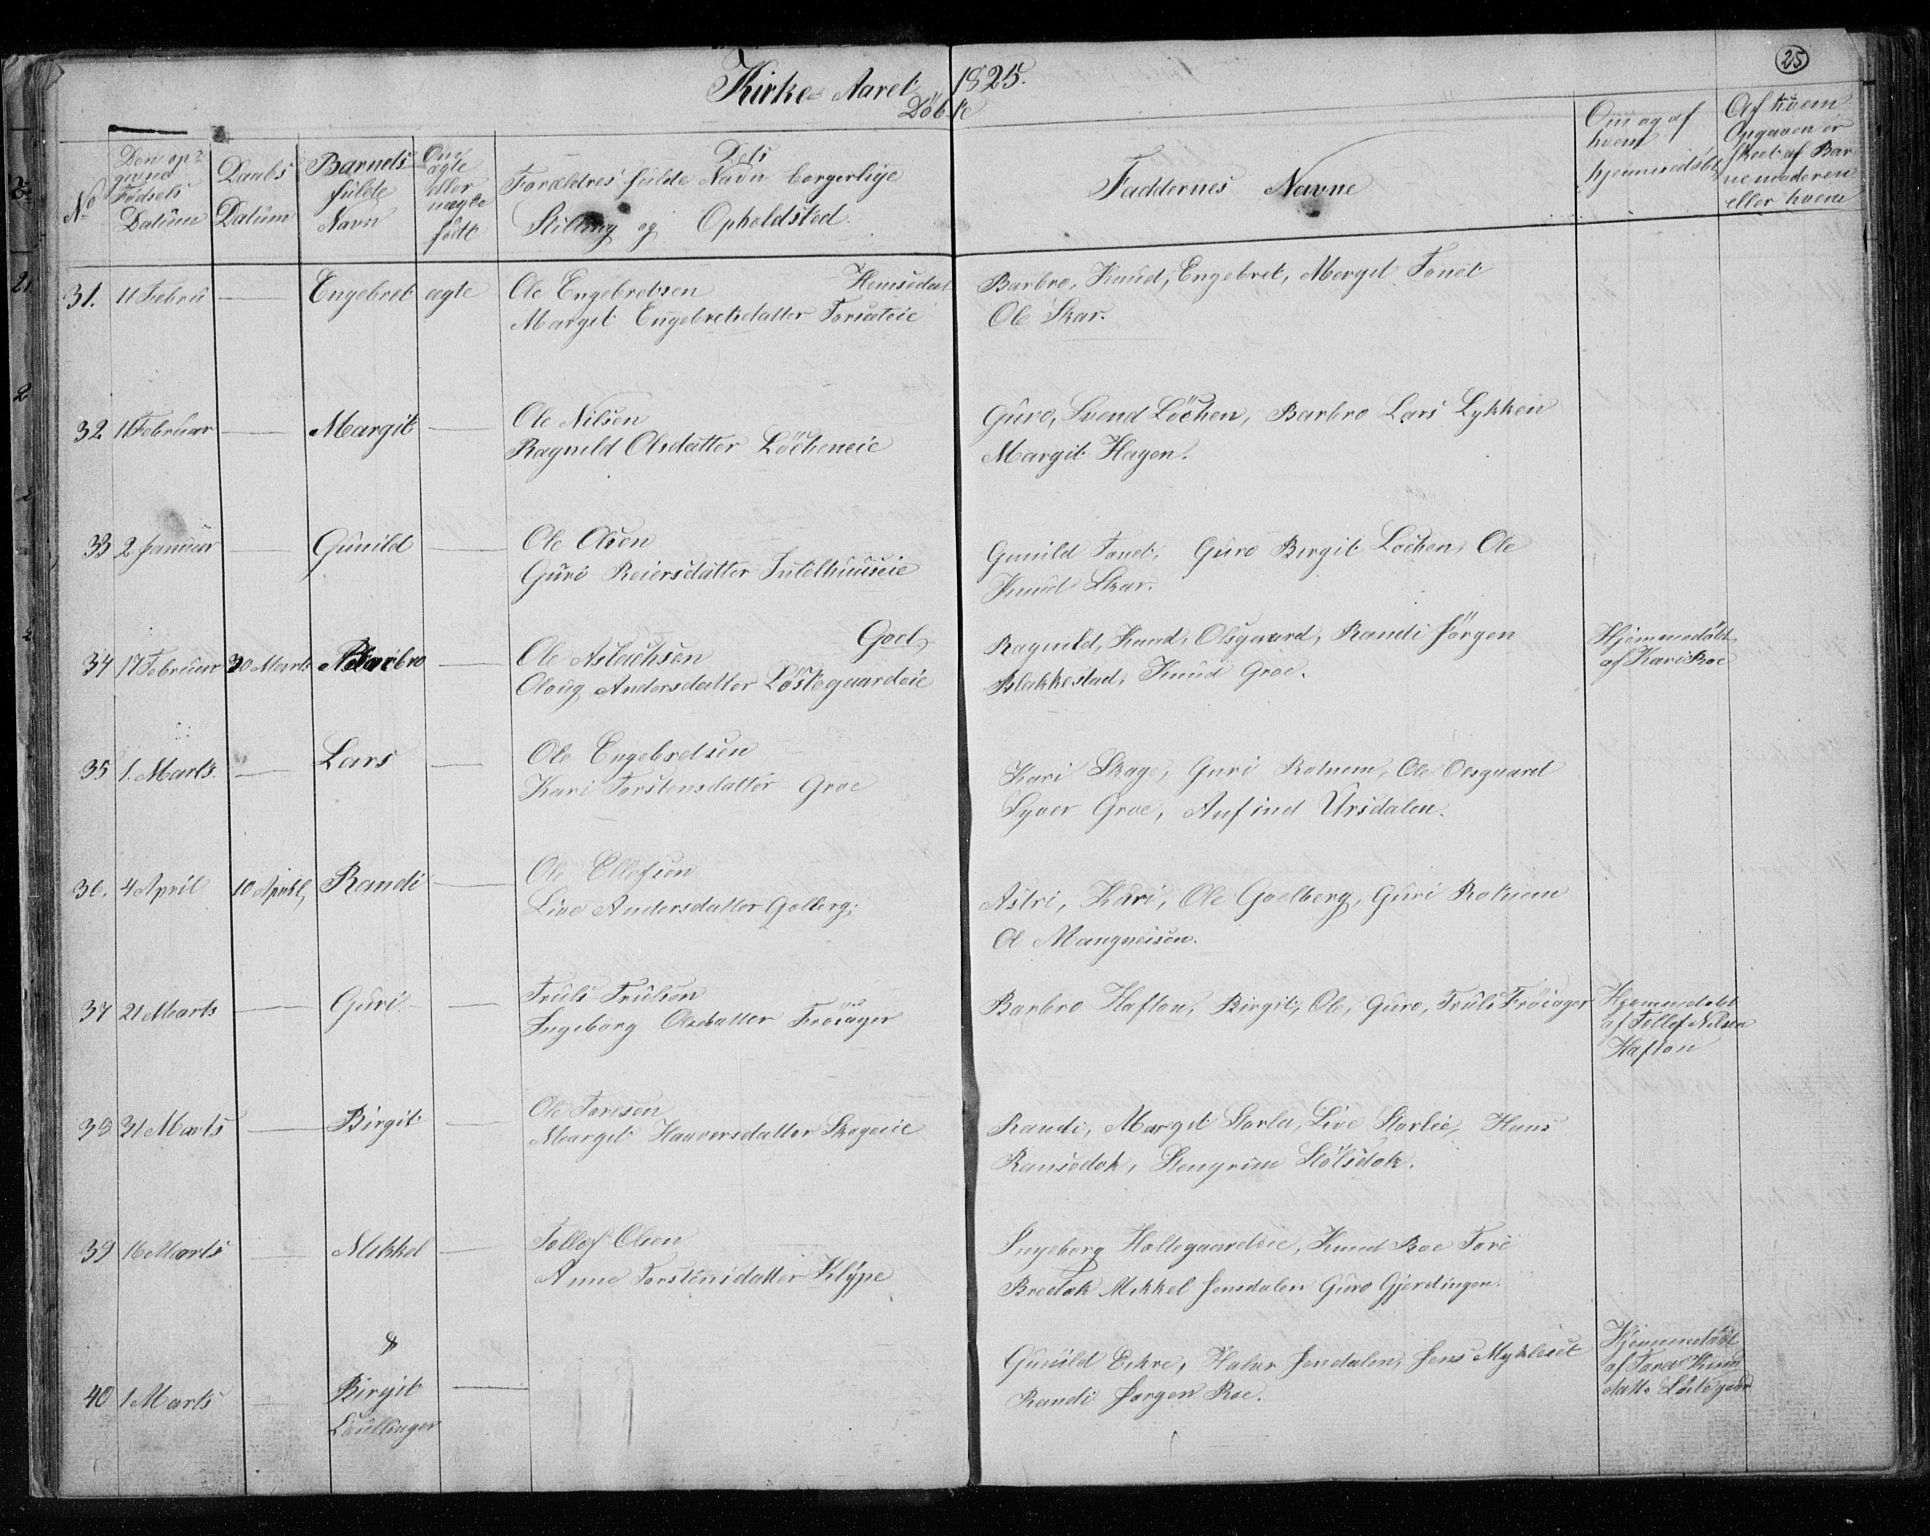 25
Kirke-Aaret 1825.
Döbte
No
Den op-
givne
Födsels
Datum
Daabs
Datum
Barnets
fulde
Navn
Om
ægte
eller
uægte
födt
Dets
Forældres fulde Navn borgerlige
Stilling og Opholdsted
Faddernes Navne
Om og af
hvem
hjemmedöbt
Af hvem
Opgaven er
skeet af Bar-
nemoderen
eller hvem
31. 11 Febru — Engebret ægte Ole Engebretsen Hemsedal Barbro, Knud, Engebret, Margit Tonet
Margit Engebretsdatter Ole Skar.
32 11 Februar — Margit — Ole Nilsen Guro, Svend Löchen, Barbro Lars Lykken
Ragnild Olsdatter Löcheneie Margit Hagen.
33 2 Januar — Gunild — Ole Olsen Gunild Tonet, Guro Birgit Lochen, Ole
Guri Reiersdatter Knud Skar.
Goel
34 17 Februar 30 Marts Barbro — Ole Aslachsen Ragnild, Knud, Olsgaard, Randi Jörgen Hjemmedöbt
Olaug Andersdatter Löstegaardeie Blakkestad, Knud Groe. af Kari Roe
35 1. Marts — Lars — Ole Engebretsen Kari Skage, Guri Rotnem, Ole Olsgaard
Kari Torstensdatter Groe Syver Groe, Anfind Ursdalen.
36. 4 April 10 April, Randi — Ole Ellefsen Astri, Kari, Ole Goelberg, Guri Rotnem
Live Andersdatter Golberg; Ol Mangneisen.
37 21 Marts — Guri — Truls Trulsen Barbro Hafton, Birgit, Ole, Guro, Truls Fröiager Hjemmedöbt
Ingeborg Olsdatter Fröiager af Tollef Nilsen
Hafton
38 31 Marts — Birgit — Ole Toresen Randi, Margit Storla, Live Storlie, Hans
Margit Haaversdatter Skogeie Ransedok, Stengrim Stölsdok.
39 16 Marts — Mikkel — Tollef Olsen Ingeborg Holtegaardeie, Knud Roe Tore
Anne Torstensdatter Klype Bredok Mikkel Jensdalen Guro Gjerdingen.
&
40 1 Marts — Birgit — Gunild Eikre, Halvr Jendalen, Jens Mykleset Hjemmedöbt
Tvillinger Randi Jorgen Roe. af Knud
datter